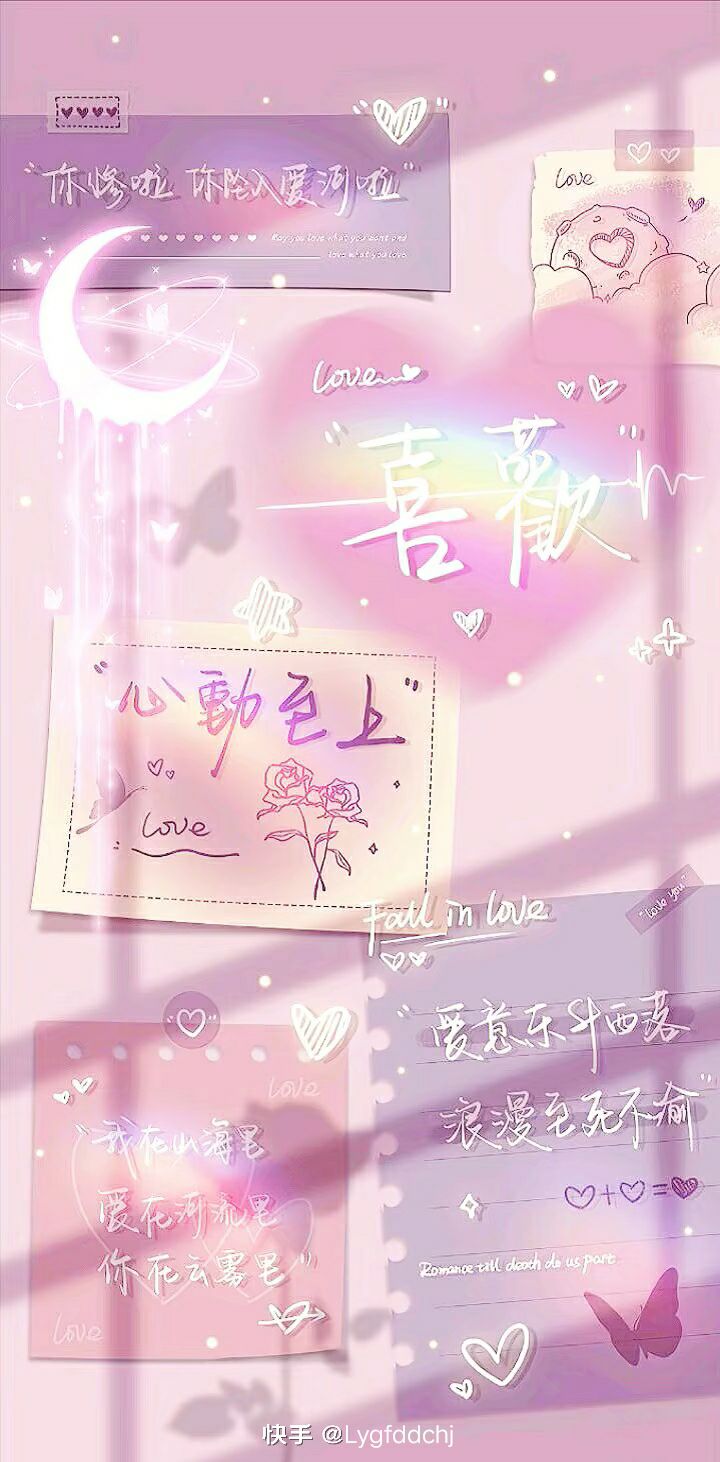 "你惨啦 你坠入爱河啦"
May you love what you want and
love what you love
Love
Love
"喜歡"
"心動至上"
Love
Fall in Love
"Love you"
"爱意东升西落
浪漫至死不渝"
Romance till death do us part
Love
"我在山海里
爱在河流里
你在云雾里"
Love
快手 @Lygfddchj